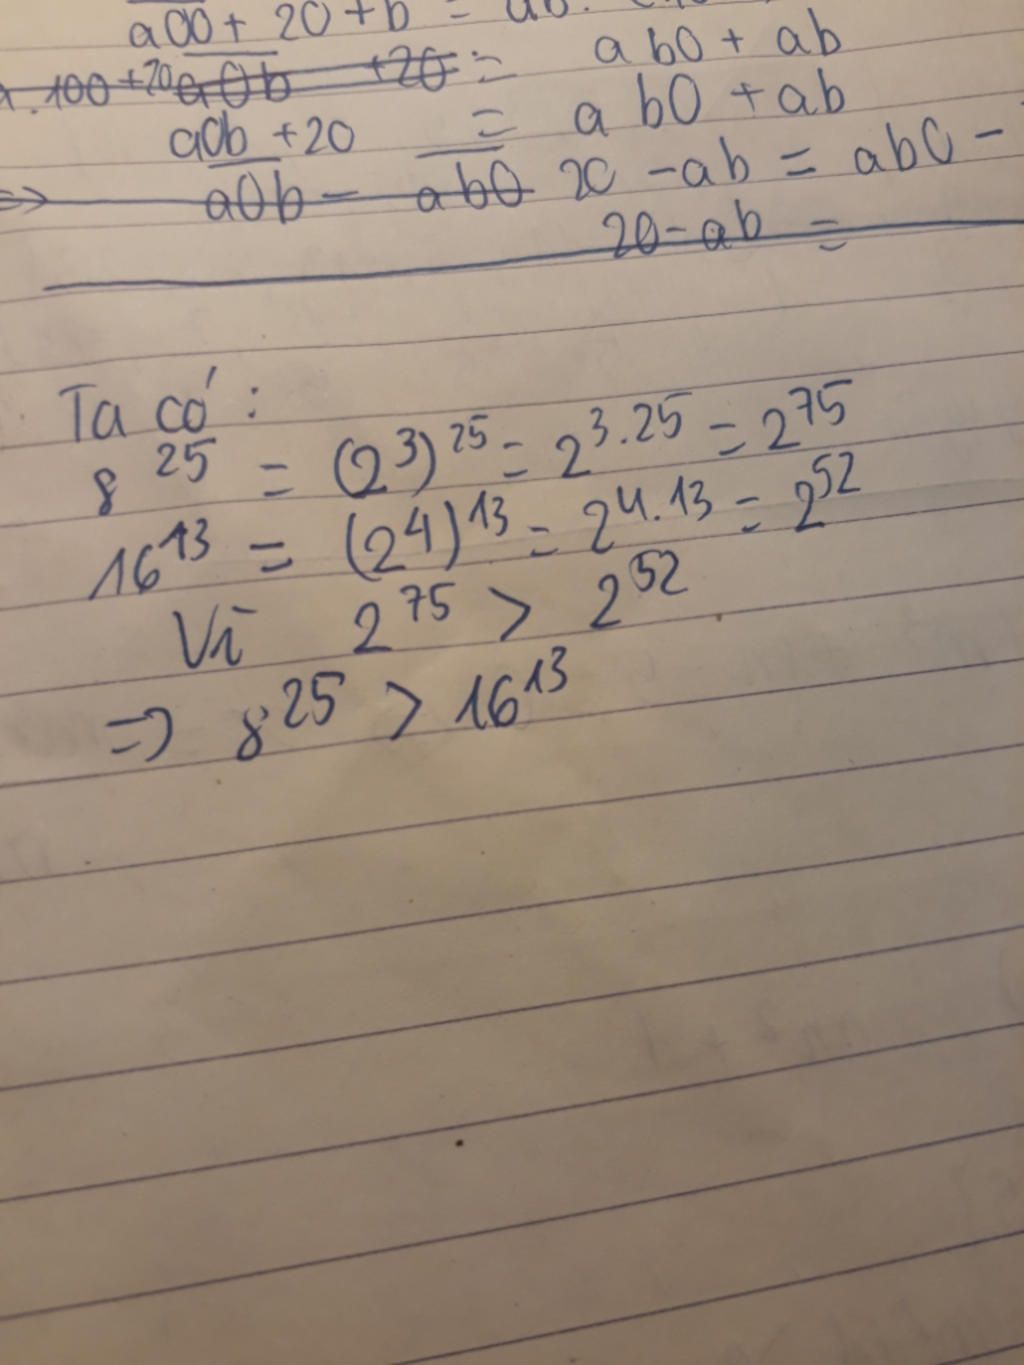 a00 + 20 + b = ab.
.100 +20 a0b +20 = ab0 + ab
a0b + 20 = ab0 + ab
=> a0b - ab0 20 - ab = ab0 -
20 - ab =
Ta có:
8^25 = (2^3)^25 = 2^3.25 = 2^75
16^13 = (2^4)^13 = 2^4.13 = 2^52
Vì 2^75 > 2^52
=> 8^25 > 16^13